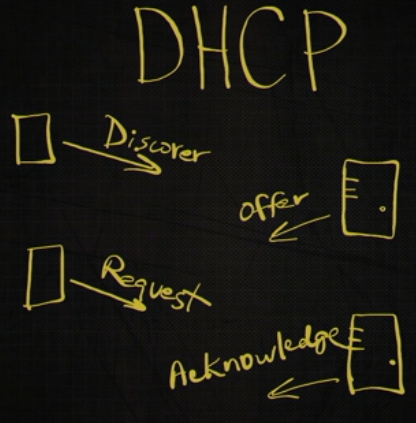 DHCP
Discover
Offer
Request
Acknowledge